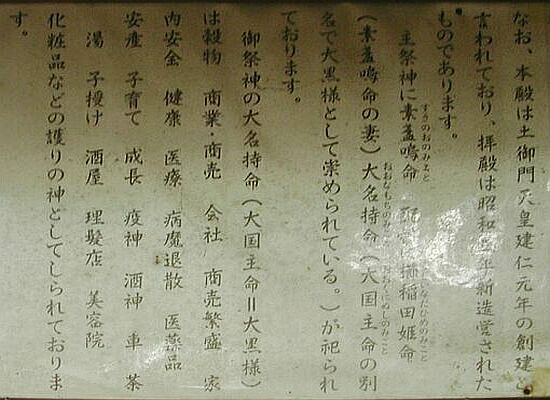 なお、本殿は土御門天皇建仁元年の創建と
言われており、拝殿は昭和 年新造営された
ものであります。
主祭神に素盞嗚命 稲田姫命
(素盞嗚命の妻)大名持命(大国主命の別
名で大黒様として崇められている。)が祀られ
ております。
御祭神の大名持命(大国主命=大黒様)
は穀物 商業・商売 会社 商売繁盛 家
内安全 健康 医療 病魔退散 医薬品
安産 子育て 成長 疫神 酒神 車 茶
湯 子授け 酒屋 理髪店 美容院
化粧品などの護りの神としてしられておりま
す。